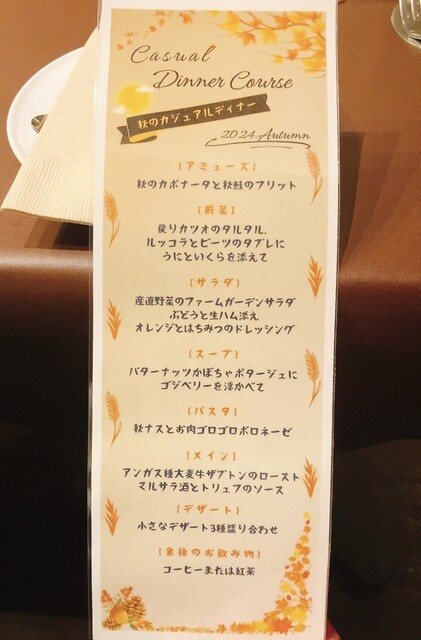 Casual
Dinner Course
秋のカジュアルディナー
2024.Autumn
[アミューズ]
秋のカポナータと秋鮭のフリット
[前菜]
戻りカツオのタルタル、
ルッコラとビーツのタブレに
うにといくらを添えて
[サラダ]
産直野菜のファームガーデンサラダ
ぶどうと生ハム添え
オレンジとはちみつのドレッシング
[スープ]
バターナッツかぼちゃポタージュに
ゴジベリーを浮かべて
[パスタ]
秋ナスとお肉ゴロゴロボロネーゼ
[メイン]
アンガス種大麦牛ザブトンのロースト
マルサラ酒とトリュフのソース
[デザート]
小さなデザート3種盛り合わせ
[食後のお飲み物]
コーヒーまたは紅茶